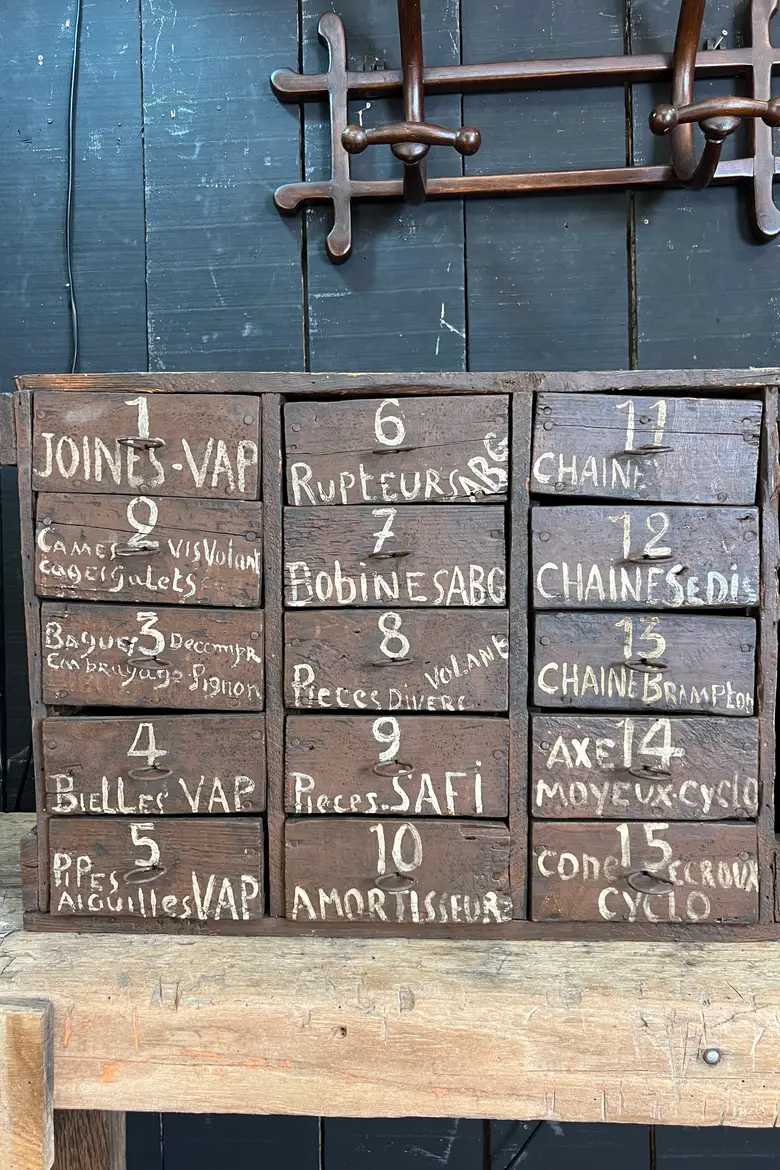 1
JOINES-VAP
2
CAMES VIS Volant
cages Galets
3
Bagues Decompr
Embrayage-Pignon
4
BielleS VAP
5
PiPES
AiguillesVAP
6
RuptEURS ABG
7
BobiNESABG
8
VOLANT
PiecesDivers
9
Pieces-SAFi
10
AMORTISSEUR
11
CHAINE
12
CHAINESedis
13
CHAINEBRAMPton
14
AXE
MOYEUX-CYCLO
15
CONE ECROUX
CYCLO